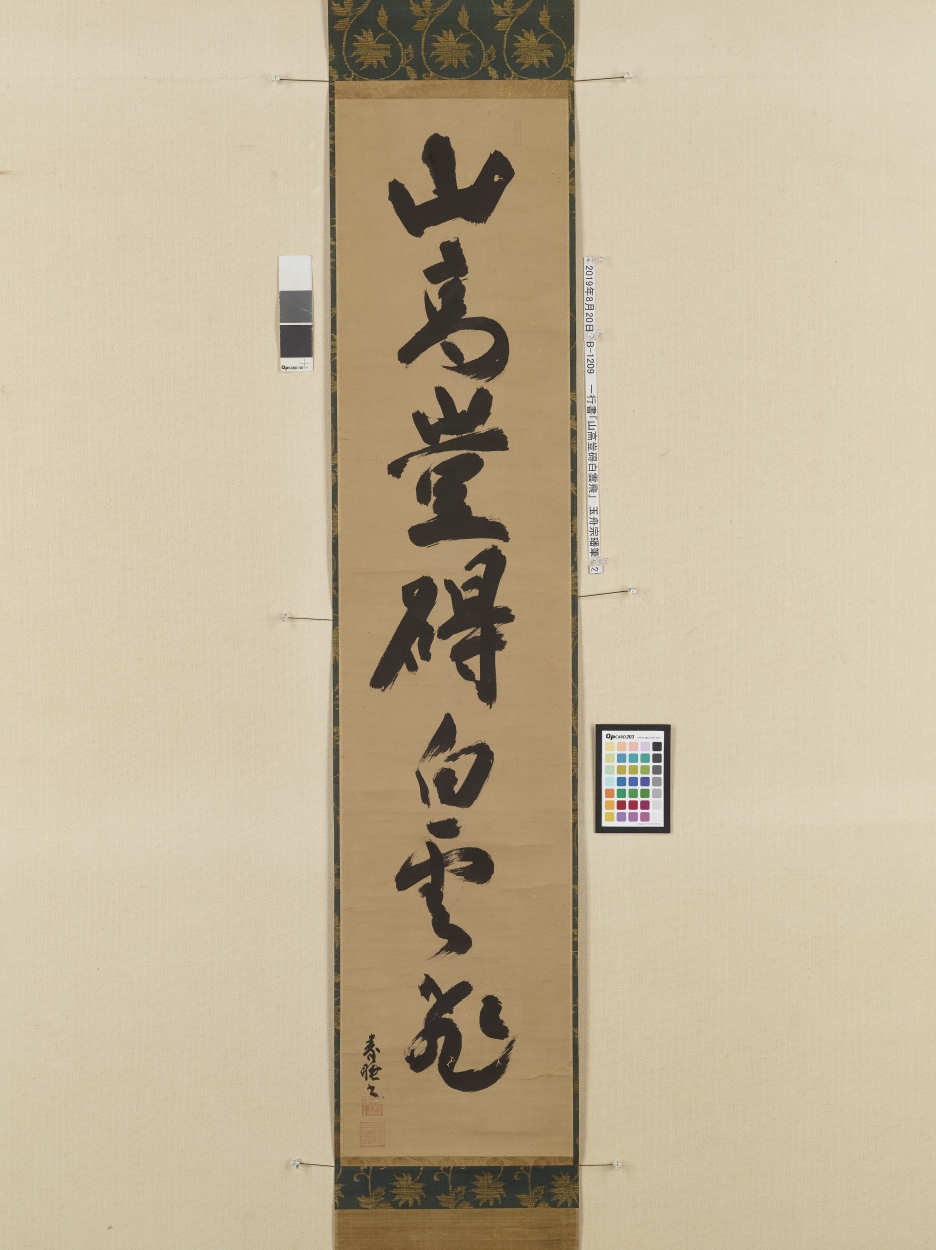 山高豈碍白雲飛
2019年8月20日 B-1209 一行書「山高豈碍白雲飛」 玉舟宗璠筆 2
QpCARD 203
QpCARD 101